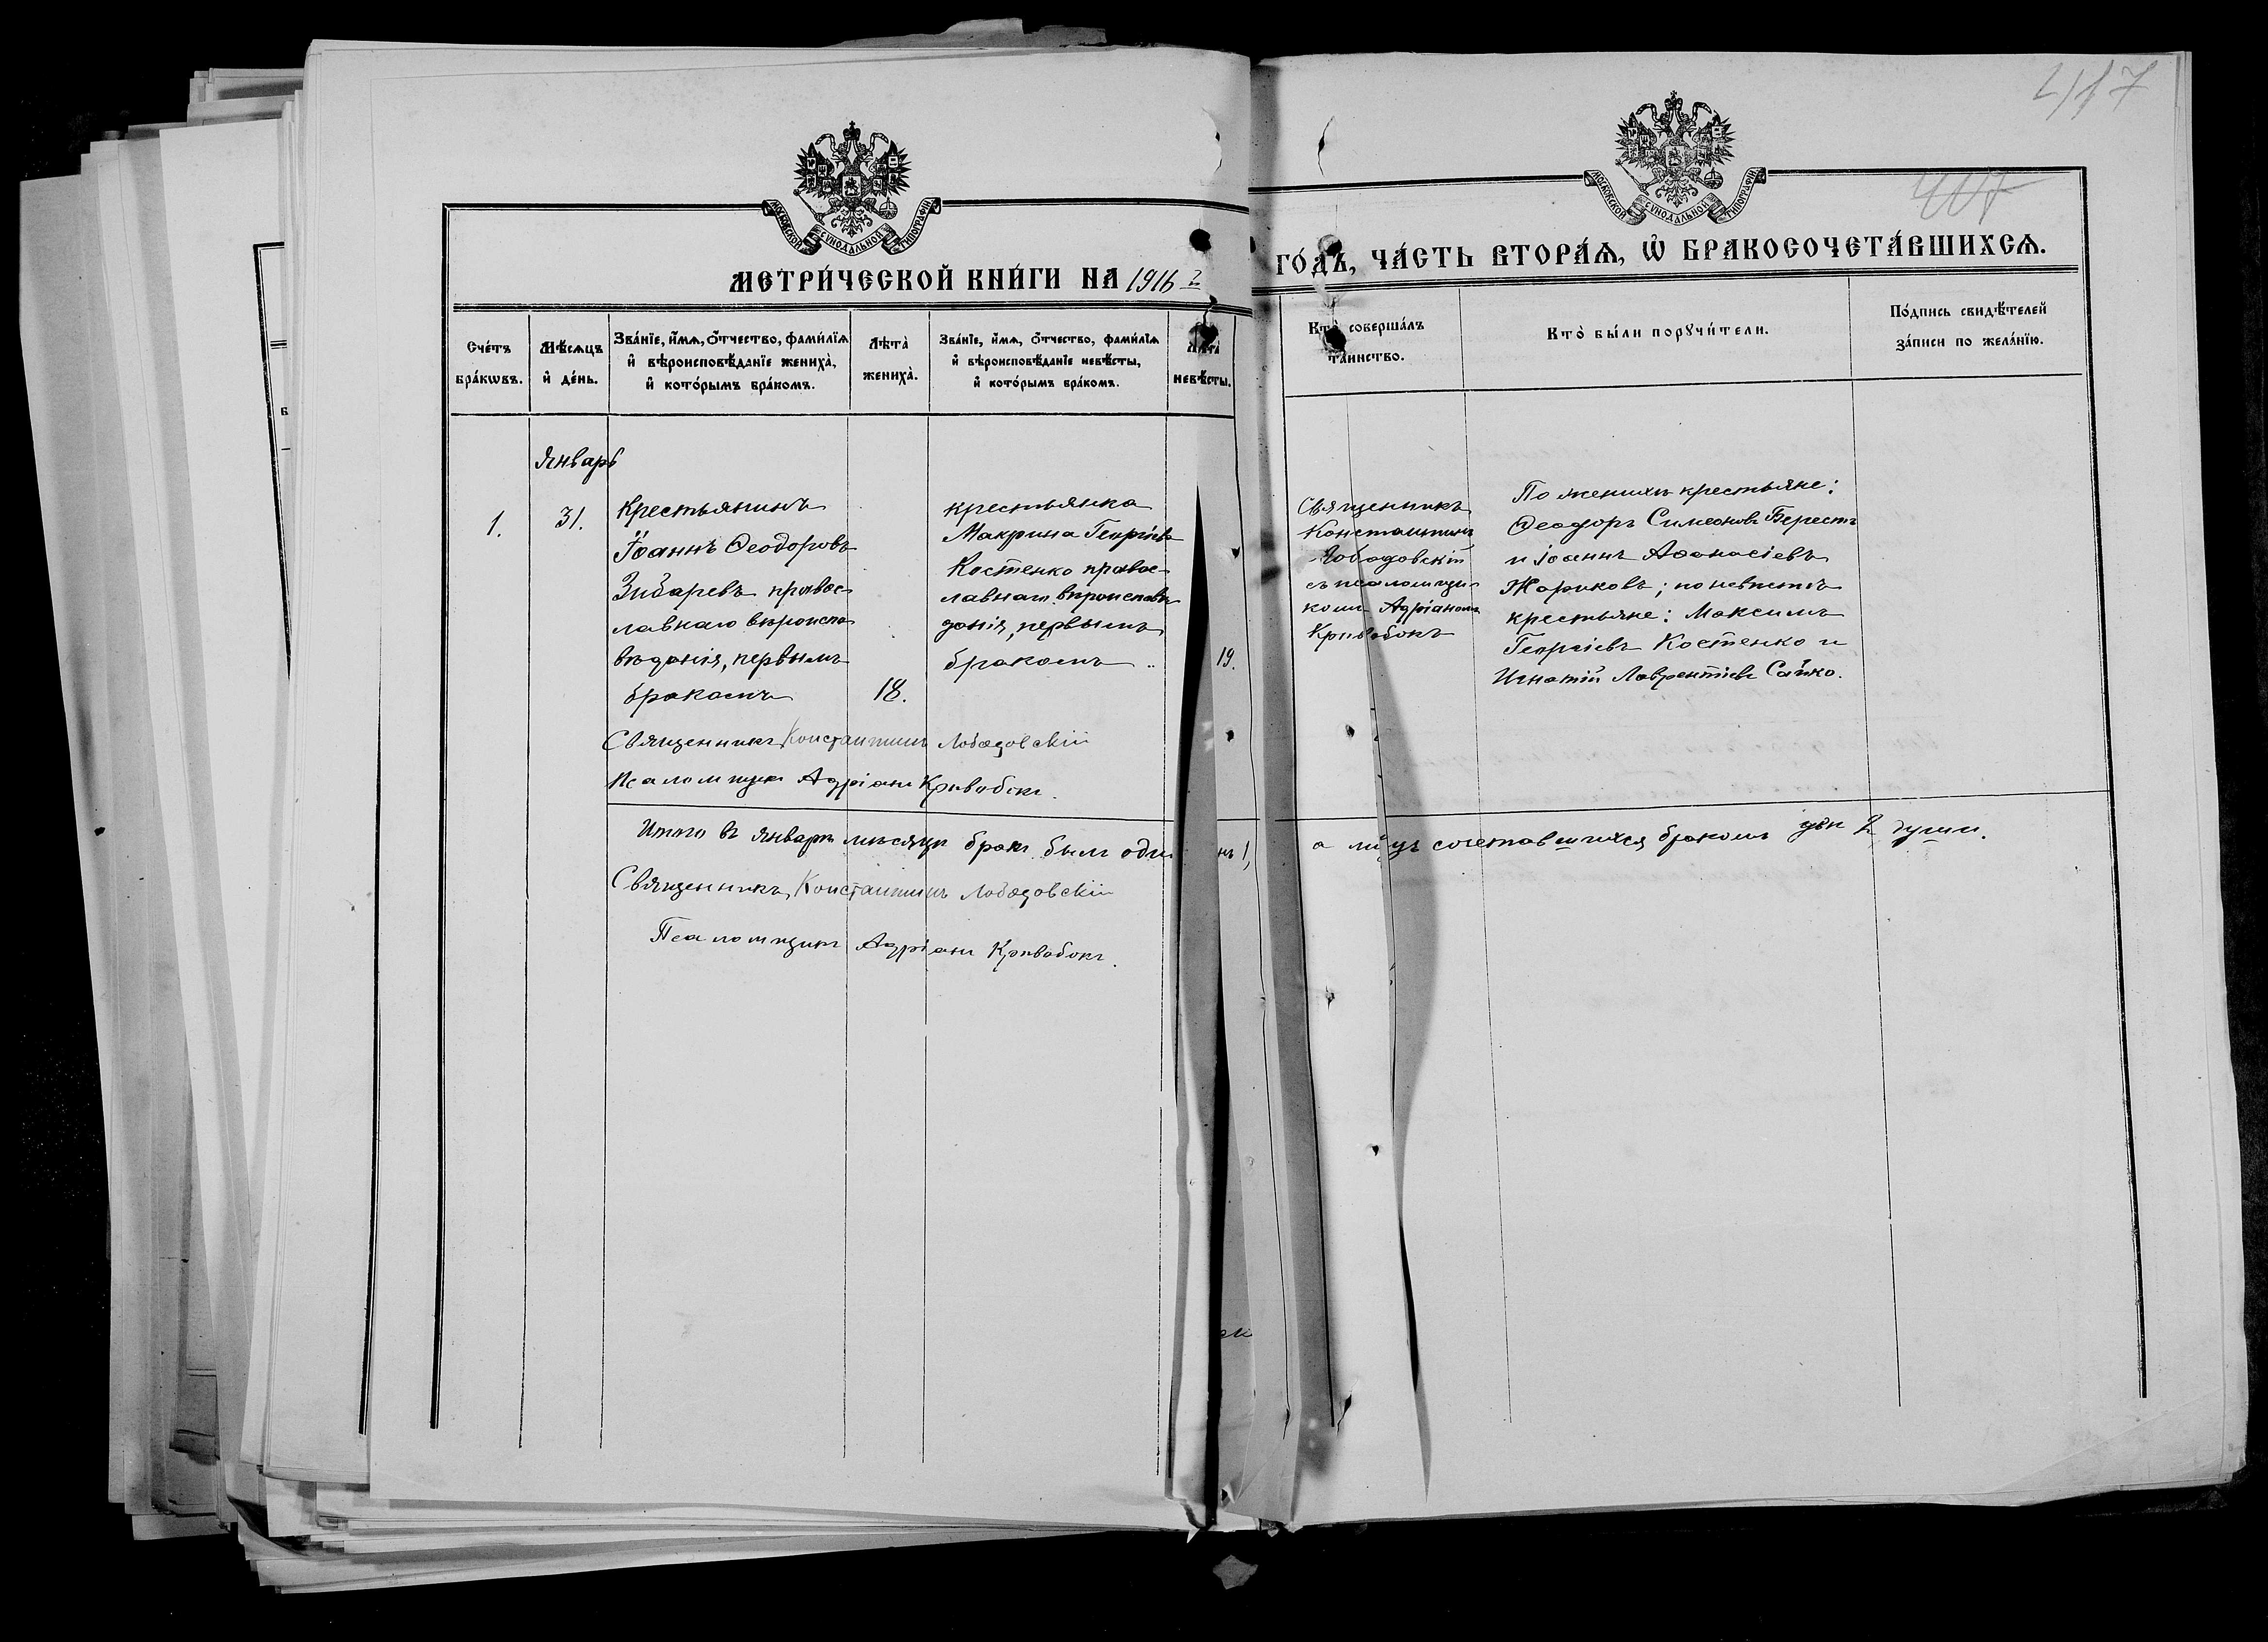 417
МОСКОВСКОЙ СѴНОДАЛЬНОЙ ТИПОГРАФІИ
МОСКОВСКОЙ СѴНОДАЛЬНОЙ ТИПОГРАФІИ
МЕТРИ́ЧЕСКОЙ КНИ́ГИ НА 1916 г.
ГО́ДЪ, ЧА́СТЬ ВТОРА́Ѧ, Ѡ҆ БРАКОСОЧЕТА́ВШИХСѦ.
Сче́тъ
бра́кѡвъ.
Мѣ́сѧцъ
и҆ де́нь.
Зва́нїе, и҆́мѧ, ѻ҆́тчество, фами́лїѧ
и҆ вѣроисповѣ́данїе жениха̀,
и҆ кото́рымъ бра́комъ.
Лѣта̀
жениха̀.
Зва́нїе, и҆́мѧ, ѻ҆́тчество, фами́лїѧ
и҆ вѣроисповѣ́данїе невѣ́сты,
и҆ кото́рымъ бра́комъ.
Лѣта̀
невѣ́сты.
Кто̀ соверша́лъ
та́инство.
Кто̀ бы́ли порꙋчи́тели.
По́дпись свидѣ́телей
за́писи по жела́нїю.
Январь
1.
31.
Крестьянинъ
Іоаннъ Ѳеодоровъ
Зибаревъ правос-
лавнаго вѣроиспо
вѣданія, первымъ
бракомъ
18.
крестьянка
Макрина Георгіева
Костенко правос-
лавнаго вѣроисповѣ
данія, первымъ
бракомъ
19.
Священникъ
Константинъ
Лободовскій
съ псаломщи-
комъ Адріаномъ
Кривобокъ
По женихѣ крестьяне:
Ѳеодоръ Симеоновъ Берестъ
и Іоаннъ Аѳанасіевъ
Жариковъ; по невѣстѣ
крестьяне: Максимъ
Георгіевъ Костенко и
Игнатій Лаврентіевъ Сайко.
Священникъ Константинъ Лободовскій
Псаломщикъ Адріанъ Кривобокъ.
Итого въ январѣ мѣсяцѣ бракъ былъ одинъ 1, а лицъ сочетавшихся бракомъ двѣ 2 души.
Священникъ Константинъ Лободовскій
Псаломщикъ Адріанъ Кривобокъ.